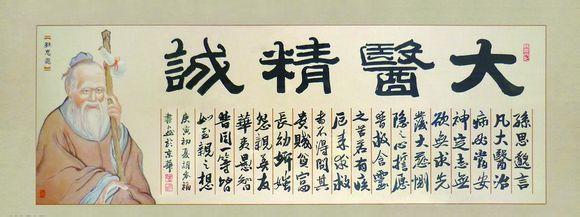 大醫精誠
孫思邈言
凡大醫治
病必當安
神定志無
欲無求先
發大慈惻
隱之心誓願
普救含靈
之苦若有疾
厄來求救
者不得問其
貴賤貧富
長幼妍媸
怨親善友
華夷愚智
普同一等皆
如至親之想
庚寅初夏
於京華
孫思邈